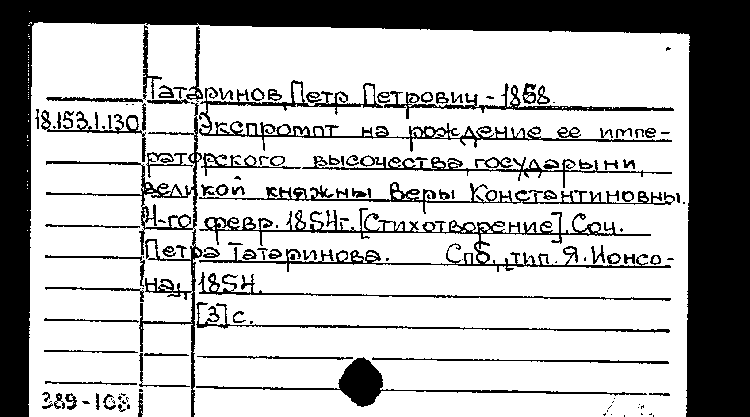 Татаринов, Петр Петрович, -1868.
18.153.1.130 Экспромпт на рождение ее импе-
раторского высочества, государыни,
великой княжны Веры Константиновны.
4-го февр. 1854г. [Стихотворение]. Соч.
Петра Татаринова. Спб., тип. Я. Ионсо-
на, 1854.
[3] с.
389-108